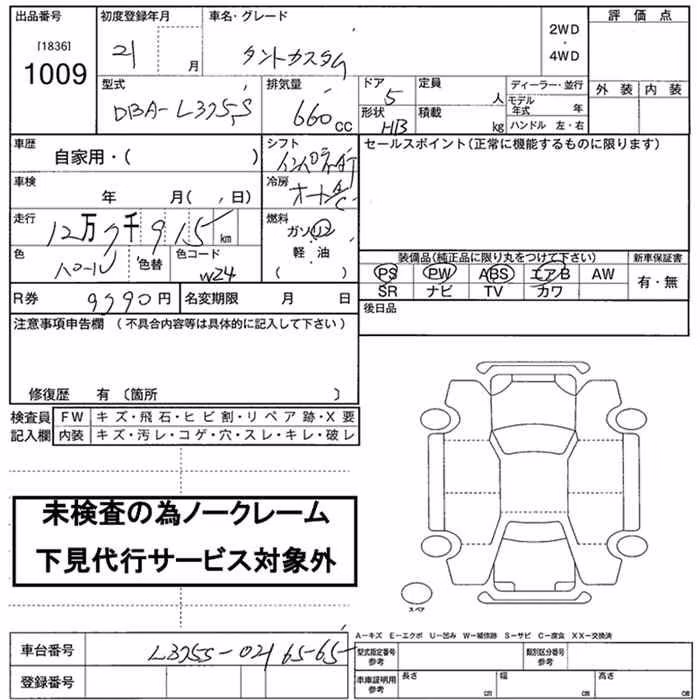 出品番号
[1836]
1009
初度登録年月
21 月
車名・グレード
タントカスタム
2WD
・
4WD
評価点
外装 内装
型式
DBA-L375S
排気量
660 cc
ドア
5
形状
HB
定員
人
積載
kg
ディーラー・並行
モデル年式 年
ハンドル 左・右
車歴
自家用・( )
シフト
インパネAT
セールスポイント(正常に機能するものに限ります)
車検
年 月( , 日)
冷房
オートA/C
走行
12万7千915 km
燃料
ガソリン
軽油
( )
色
パール
色替
色コード
W24
装備品(純正品に限り丸をつけて下さい)
PS PW ABS エアB AW
SR ナビ TV カワ
新車保証書
有・無
R券 9790円
名変期限 月 日
後日品
注意事項申告欄 (不具合内容等は具体的に記入して下さい)
修復歴 有 〔箇所 〕
検査員記入欄
FW キズ・飛石・ヒビ割・リペア跡・X要
内装 キズ・汚レ・コゲ・穴・スレ・キレ・破レ
未検査の為ノークレーム
下見代行サービス対象外
スペア
A-キズ E-エクボ U-凹み W-補修跡 S-サビ C-腐食 XX-交換済
車台番号 L375S-0216565
型式指定番号参考
類別区分番号参考
登録番号
車庫証明用参考
長さ cm
幅 cm
高さ cm